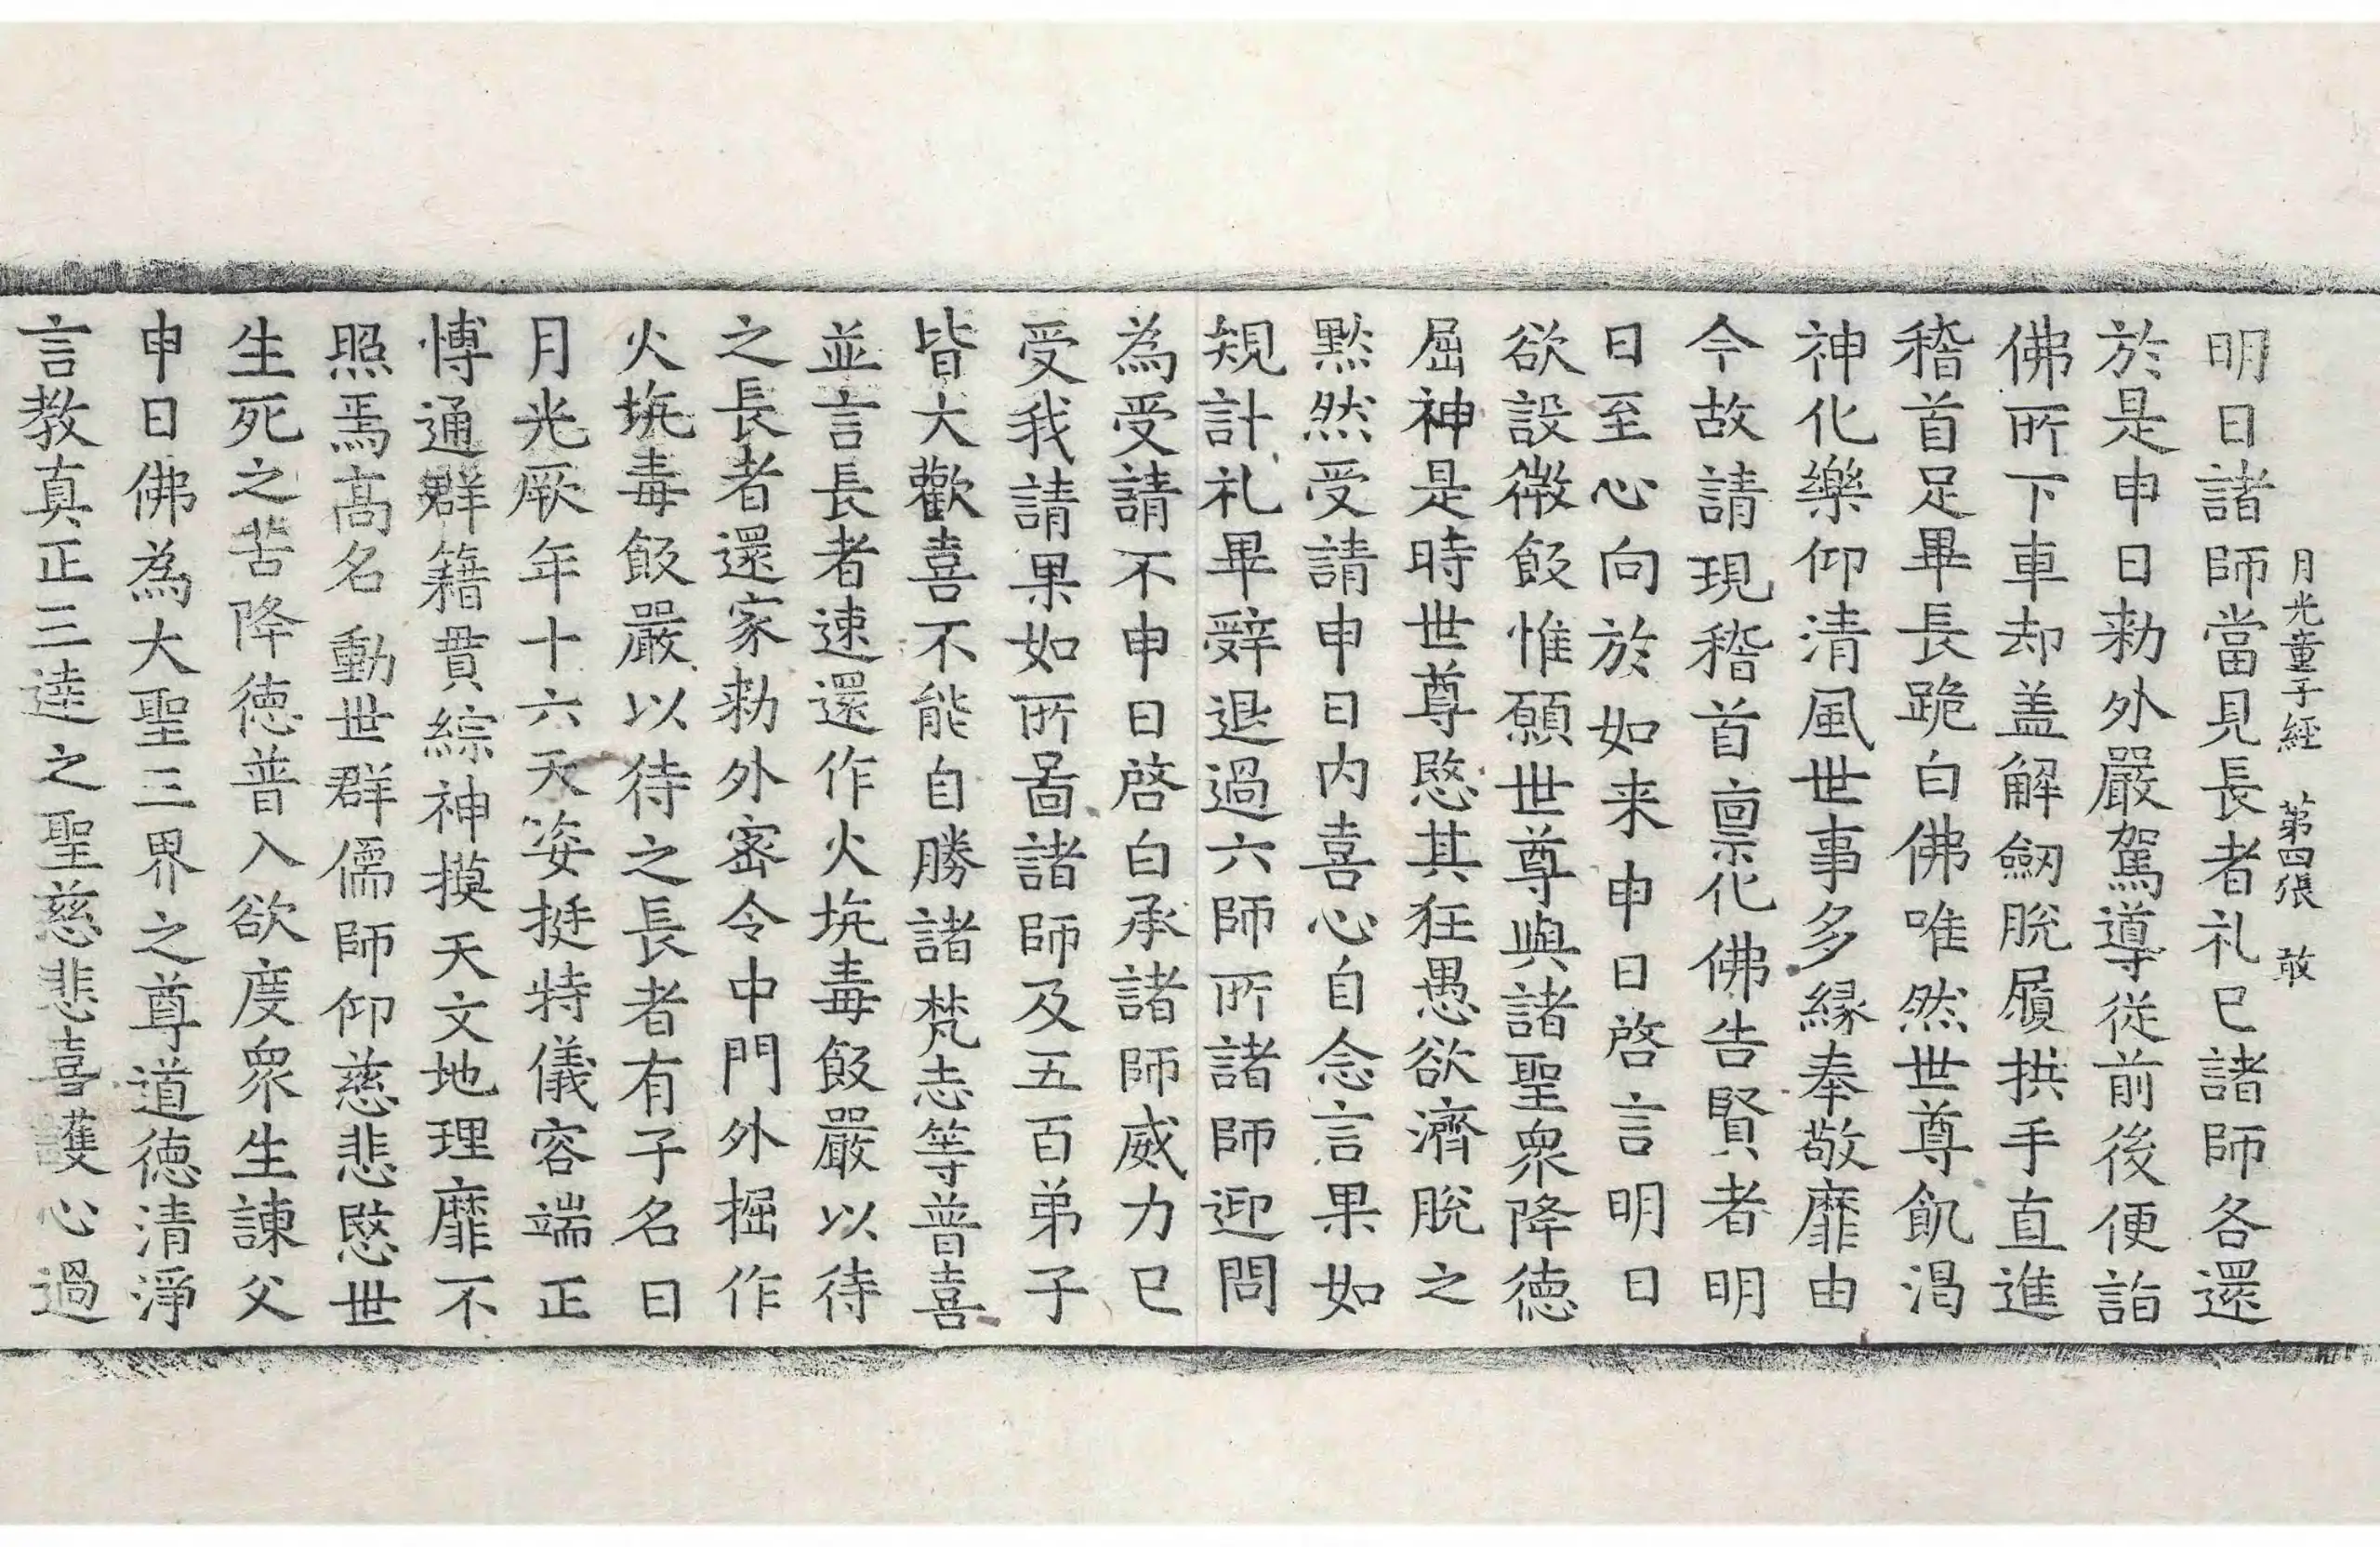 月光童子經　第四張　敢
明日諸師當見長者礼已諸師各還
於是申日勑外嚴駕導從前後便詣
佛所下車却盖解劒脫屐拱手直進
稽首足畢長跪白佛唯然世尊飢渴
神化樂仰清風世事多緣奉敬靡由
今故請現稽首稟化佛告賢者明
日至心向於如来申日啓言明日
欲設微飯惟願世尊與諸聖衆降德
屈神是時世尊愍其狂愚欲濟脫之
黙然受請申日内喜心自念言果如
䂓計礼畢辤退過六師所諸師迎問
為受請不申日啓白承諸師威力已
受我請果如所啚諸師及五百弟子
皆大歡喜不能自勝諸梵志等普喜
並言長者速還作火坑毒飯嚴以待
之長者還家勑外宻令中門外掘作
火坑毒飯嚴以待之長者有子名曰
月光厥年十六天姿挺特儀容端正
愽通群籍貫綜神摸天文地理靡不
照焉高名動世群儒師仰慈悲愍世
生死之苦降德普入欲度衆生諫父
申日佛為大聖三界之尊道德清淨
言教真正三逹之聖慈悲喜護心過